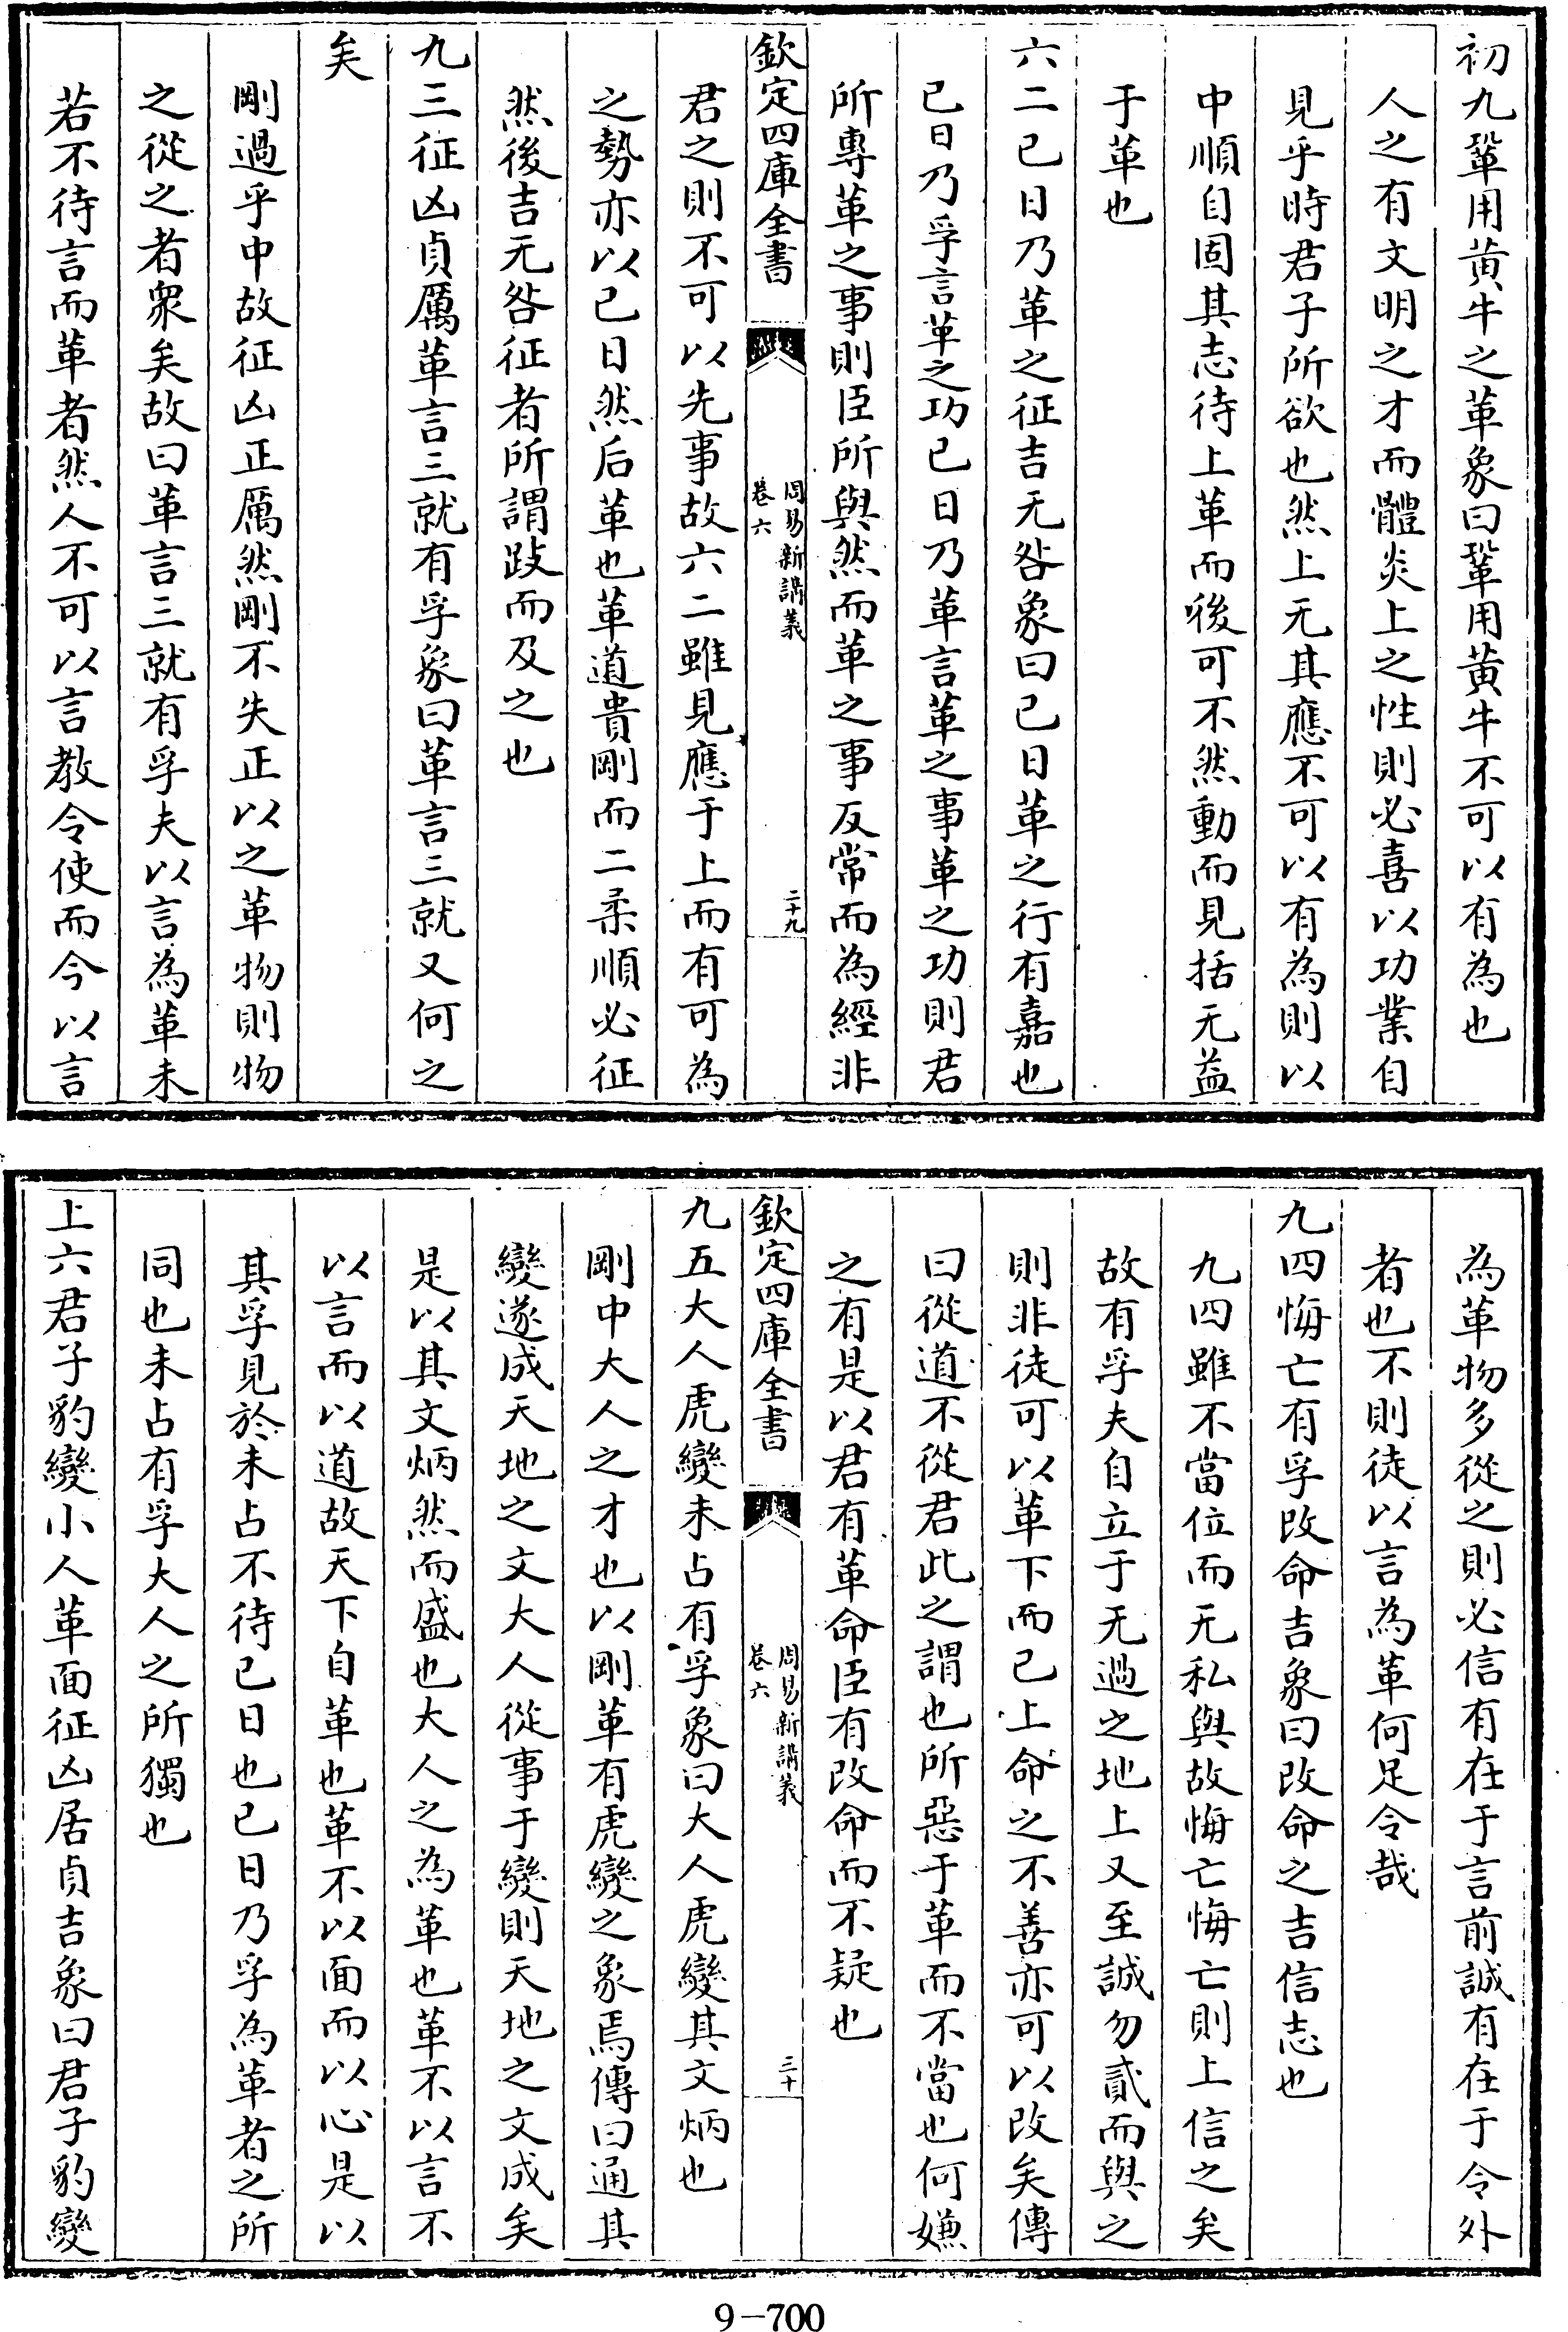 初九鞏用黄牛之革象曰鞏用黄牛不可以有為也
人之有文明之才而體炎上之性則必喜以功業自
見乎時君子所欲也然上无其應不可以有為則以
中順自固其志待上革而後可不然動而見括无益
于革也
六二已日乃革之征吉无咎象曰已日革之行有嘉也
已日乃孚言革之功已日乃革言革之事革之功則君
所專革之事則臣所與然而革之事反常而為經非
欽定四庫全書
周易新講義
卷六
二十九
君之則不可以先事故六二雖見應于上而有可為
之勢亦以已日然后革也革道貴剛而二柔順必征
然後吉无咎征者所謂跂而及之也
九三征凶貞厲革言三就有孚象曰革言三就又何之
矣
剛過乎中故征凶正厲然剛不失正以之革物則物
之從之者衆矣故曰革言三就有孚夫以言為革未
若不待言而革者然人不可以言教令使而今以言
為革物多從之則必信有在于言前誠有在于令外
者也不則徒以言為革何足令哉
九四悔亡有孚改命吉象曰改命之吉信志也
九四雖不當位而无私與故悔亡悔亡則上信之矣
故有孚夫自立于无過之地上又至誠勿貳而與之
則非徒可以革下而已上命之不善亦可以改矣傳
曰從道不從君此之謂也所惡于革而不當也何嫌
之有是以君有革命臣有改命而不疑也
欽定四庫全書
周易新講義
卷六
三十
九五大人虎變未占有孚象曰大人虎變其文炳也
剛中大人之才也以剛革有虎變之象焉傳曰通其
變遂成天地之文大人從事于變則天地之文成矣
是以其文炳然而盛也大人之為革也革不以言不
以言而以道故天下自革也革不以面而以心是以
其孚見於未占不待已日也已日乃孚為革者之所
同也未占有孚大人之所獨也
上六君子豹變小人革面征凶居貞吉象曰君子豹變
9-700